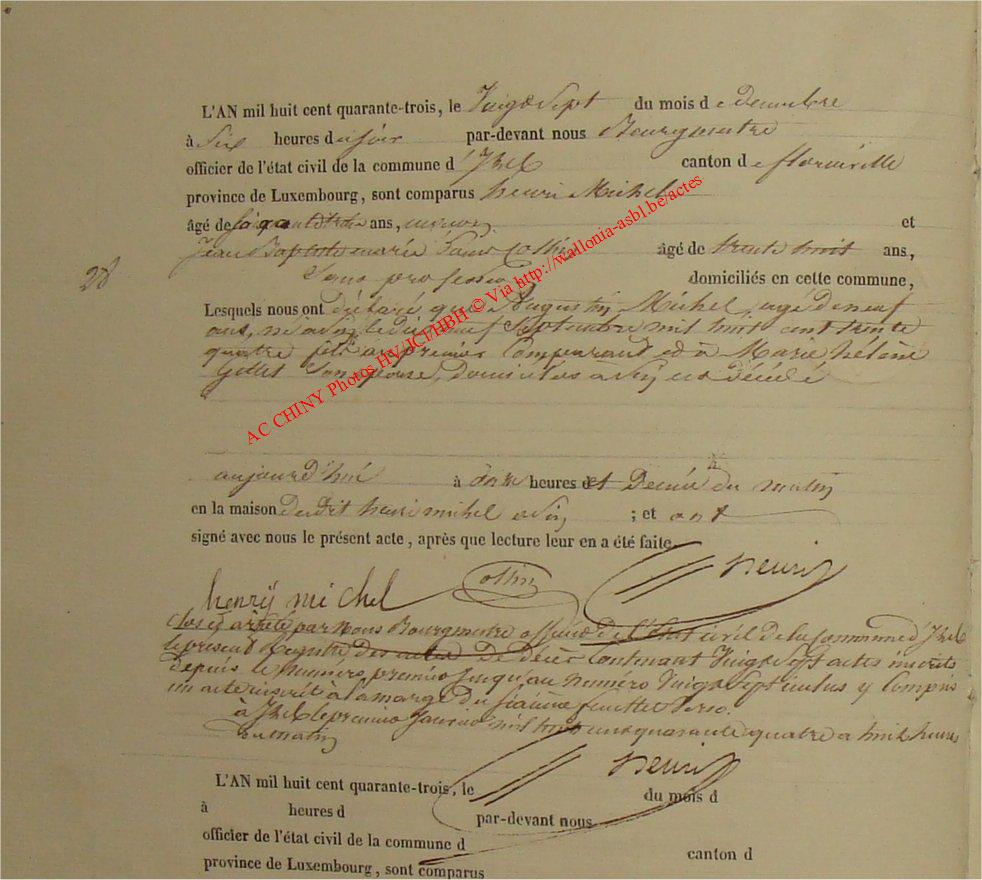 L'AN mil huit cent quarante-trois, le Vingt Sept du mois de decembre
à Six heures du soir par-devant nous Bourgmestre
officier de l'état civil de la commune d'Izel canton de florenville
province de Luxembourg, sont comparus henri Michel
âgé de ans, et
Jean Baptiste marie Collin âgé de trente huit ans,
Sans profession domiciliés en cette commune,
28
Lesquels nous ont déclaré que Augustin Michel, agé de neuf
ans, né le dix neuf Septembre mil huit cent trente
quatre fils du premier Comparant et de Marie hélène
Gillet Son épouse, Domiciliés est décédé
aujourd'hui à onze heures et Demie du matin
en la maison dudit henri michel ; et ont
signé avec nous le présent acte, après que lecture leur en a été faite
henry michel Collin
Clos et arrêté par Nous Bourgmestre officier de l'état civil de la Commune d'Izel
le present Registre des actes De Décès Contenant Vingt Sept actes inscrits
depuis le Numéro premier jusqu'au numéro Vingt Sept inclus y Compris
un acte inscrit à la marge du sixième feuillet verso.
à Izel le premier Janvier mil huit cent quarante quatre a huit heures
du matin
L'AN mil huit cent quarante-trois, le du mois d
à heures d par-devant nous
officier de l'état civil de la commune d canton d
province de Luxembourg, sont comparus
AC CHINY Photos HV/JCI/HBH © Via http://wallonia-asbl.be/actes